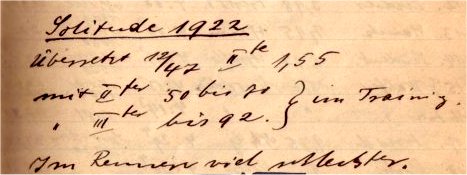 Solitude 1922
Übersetzt 12/47 IIte 1,55
mit IIter 50 bis 70 } im Training.
" IIIter bis 92.
Im Rennen viel schlechter.